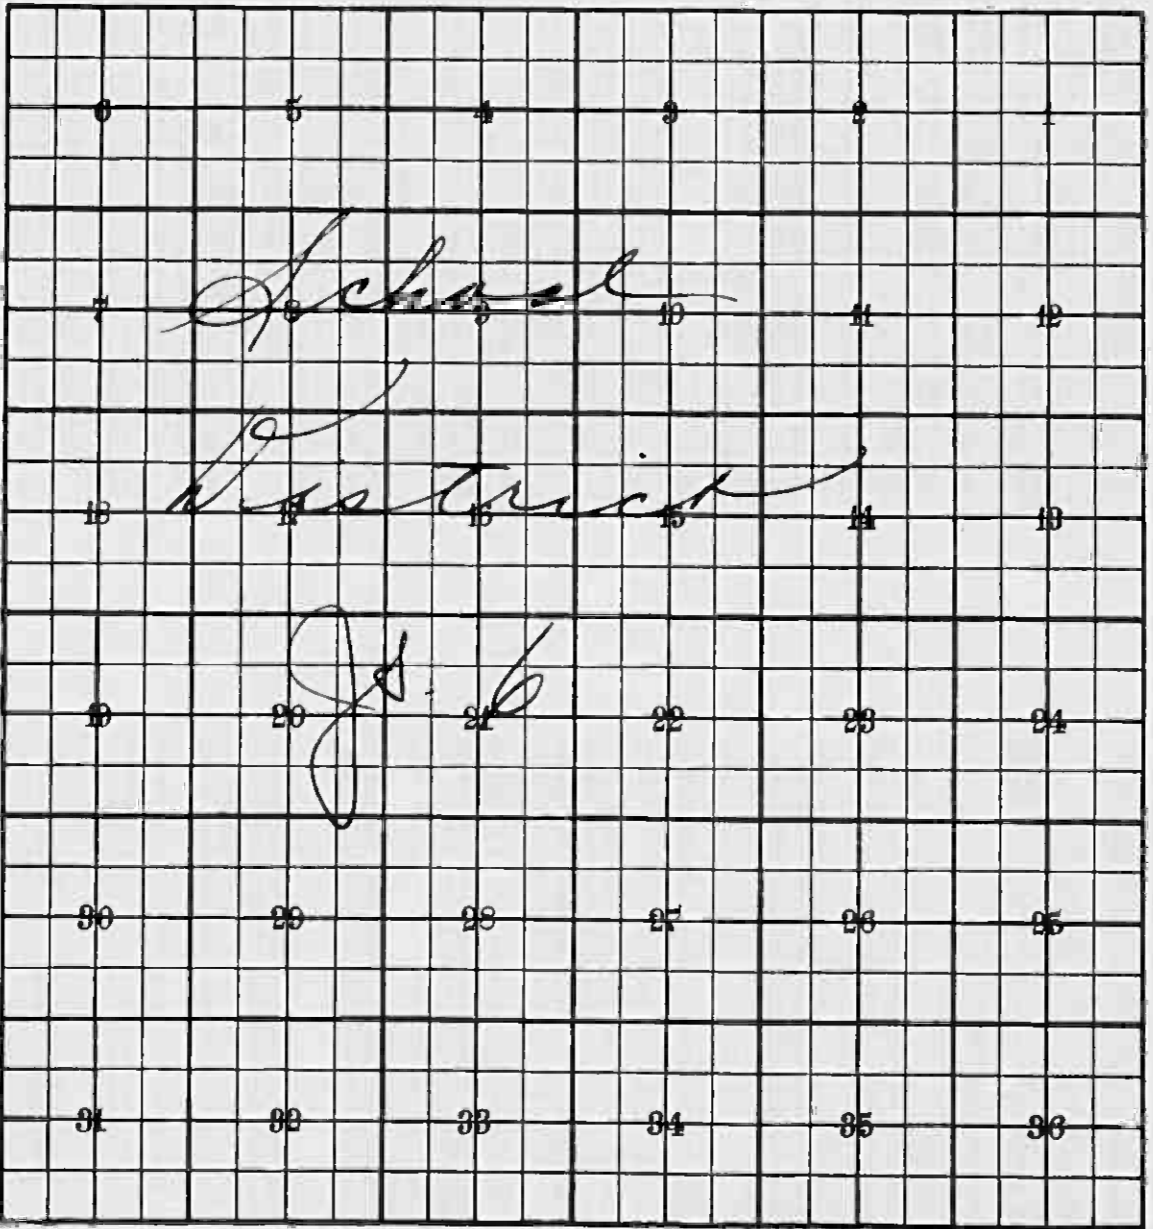 6 5 4 3 2 1
School
7 8 9 10 11 12
District
18 17 16 15 14 13
Js. 6
19 20 21 22 23 24
30 29 28 27 26 25
31 32 33 34 35 36